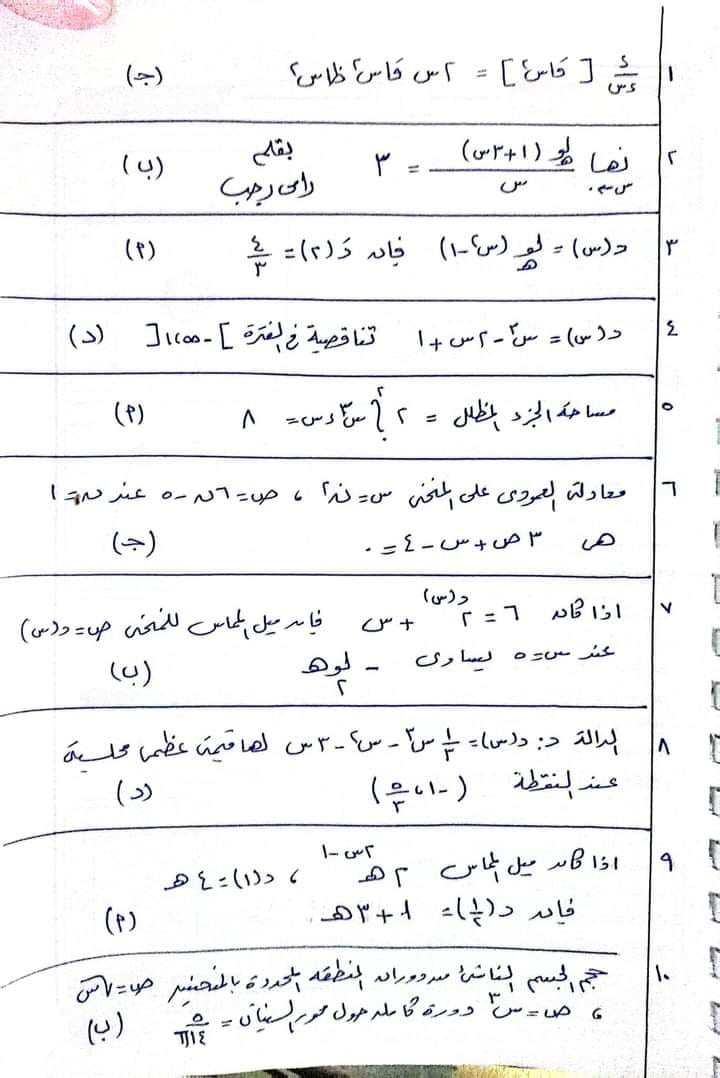 ١ د/دس [قاس٢] = ٢س قاس٢ ظاس٢ (جـ)
٢ نهــا س←٠ لو هـ (١+٣س) / س = ٣ (ب)
بقلم
رامى رجب
٣ د(س) = لو هـ (س٢-١) فإن دَ(٢) = ٤/٣ (٢)
٤ د(س) = س٢-٢س+١ تناقصية فى الفترة ]-∞،١[ (د)
٥ مساحة الجزء المظلل = ٢ ∫ س٣ دس = ٨ (٢)
٦ معادلة العمودى على المنحنى س=ن٢ ، ص=٦ن-٥ عند ن=١
هى ٣ص+س-٤=٠ (جـ)
٧ اذا كان ٦ = ٢^د(س) + س فإن ميل المماس للمنحنى ص=د(س)
عند س=٥ يساوى - لو٢هـ (ب)
٨ الدالة د: د(س) = ١/٣ س٣ - س٢ - ٣س لها قيمة عظمى محلية
عند النقطة (-١، ٥/٣) (د)
٩ اذا كان ميل المماس ٢هـ^٢س-١ ، د(١)=٤هـ
فإن د(١/٢) = ١+٣هـ (٢)
١٠ حجم الجسم الناشئ من دوران المنطقة المحددة بالمنحنيين ص=√س
، ص=س٣ دورة كاملة حول محور السينات = ٥/١٤π (ب)